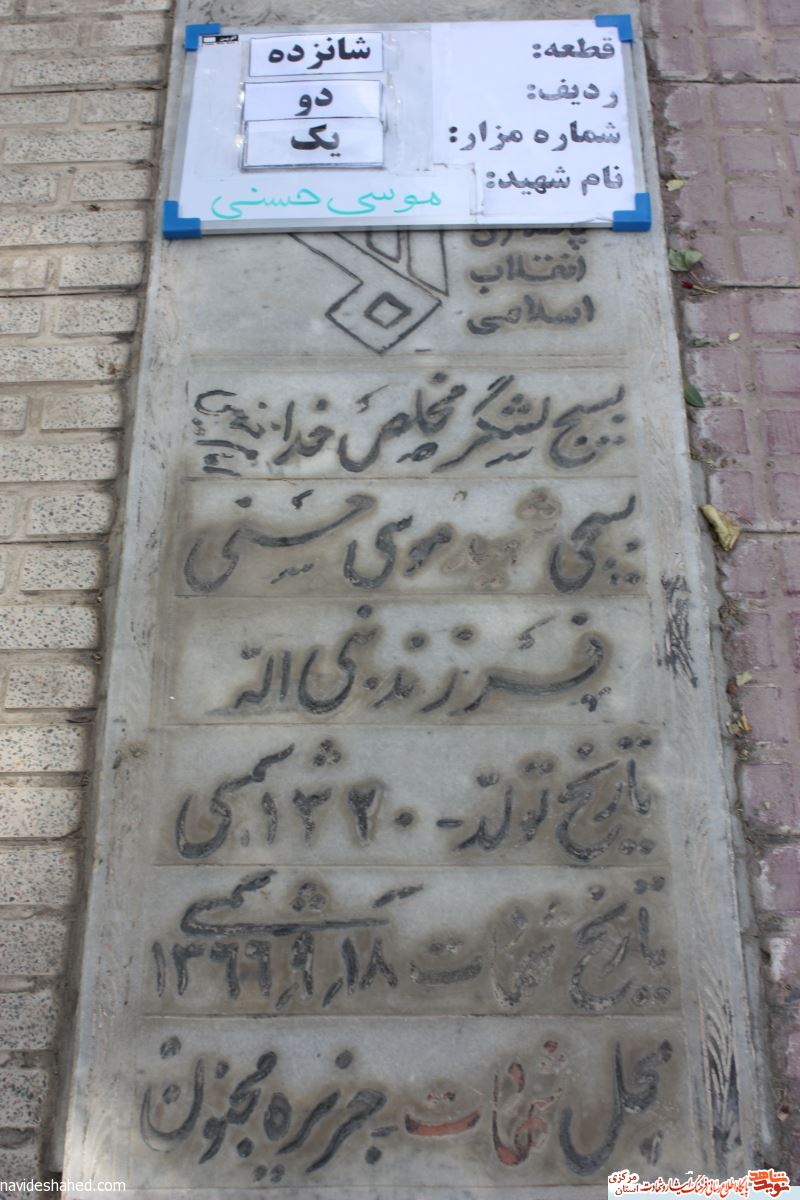 قطعه: شانزده
ردیف: دو
شماره مزار: یک
نام شهید: موسی حسنی
انقلاب
اسلامی
بسیج لشگر مخلص خداست
بسیجی شهید موسی حسنی
فرزند نبی اله
تاریخ تولد - ۱۳۲۰ شمسی
تاریخ شهادت ۱۸٫۹٫۱۳۶۶ شمسی
محل شهادت - جزیره مجنون
navideshahed.com